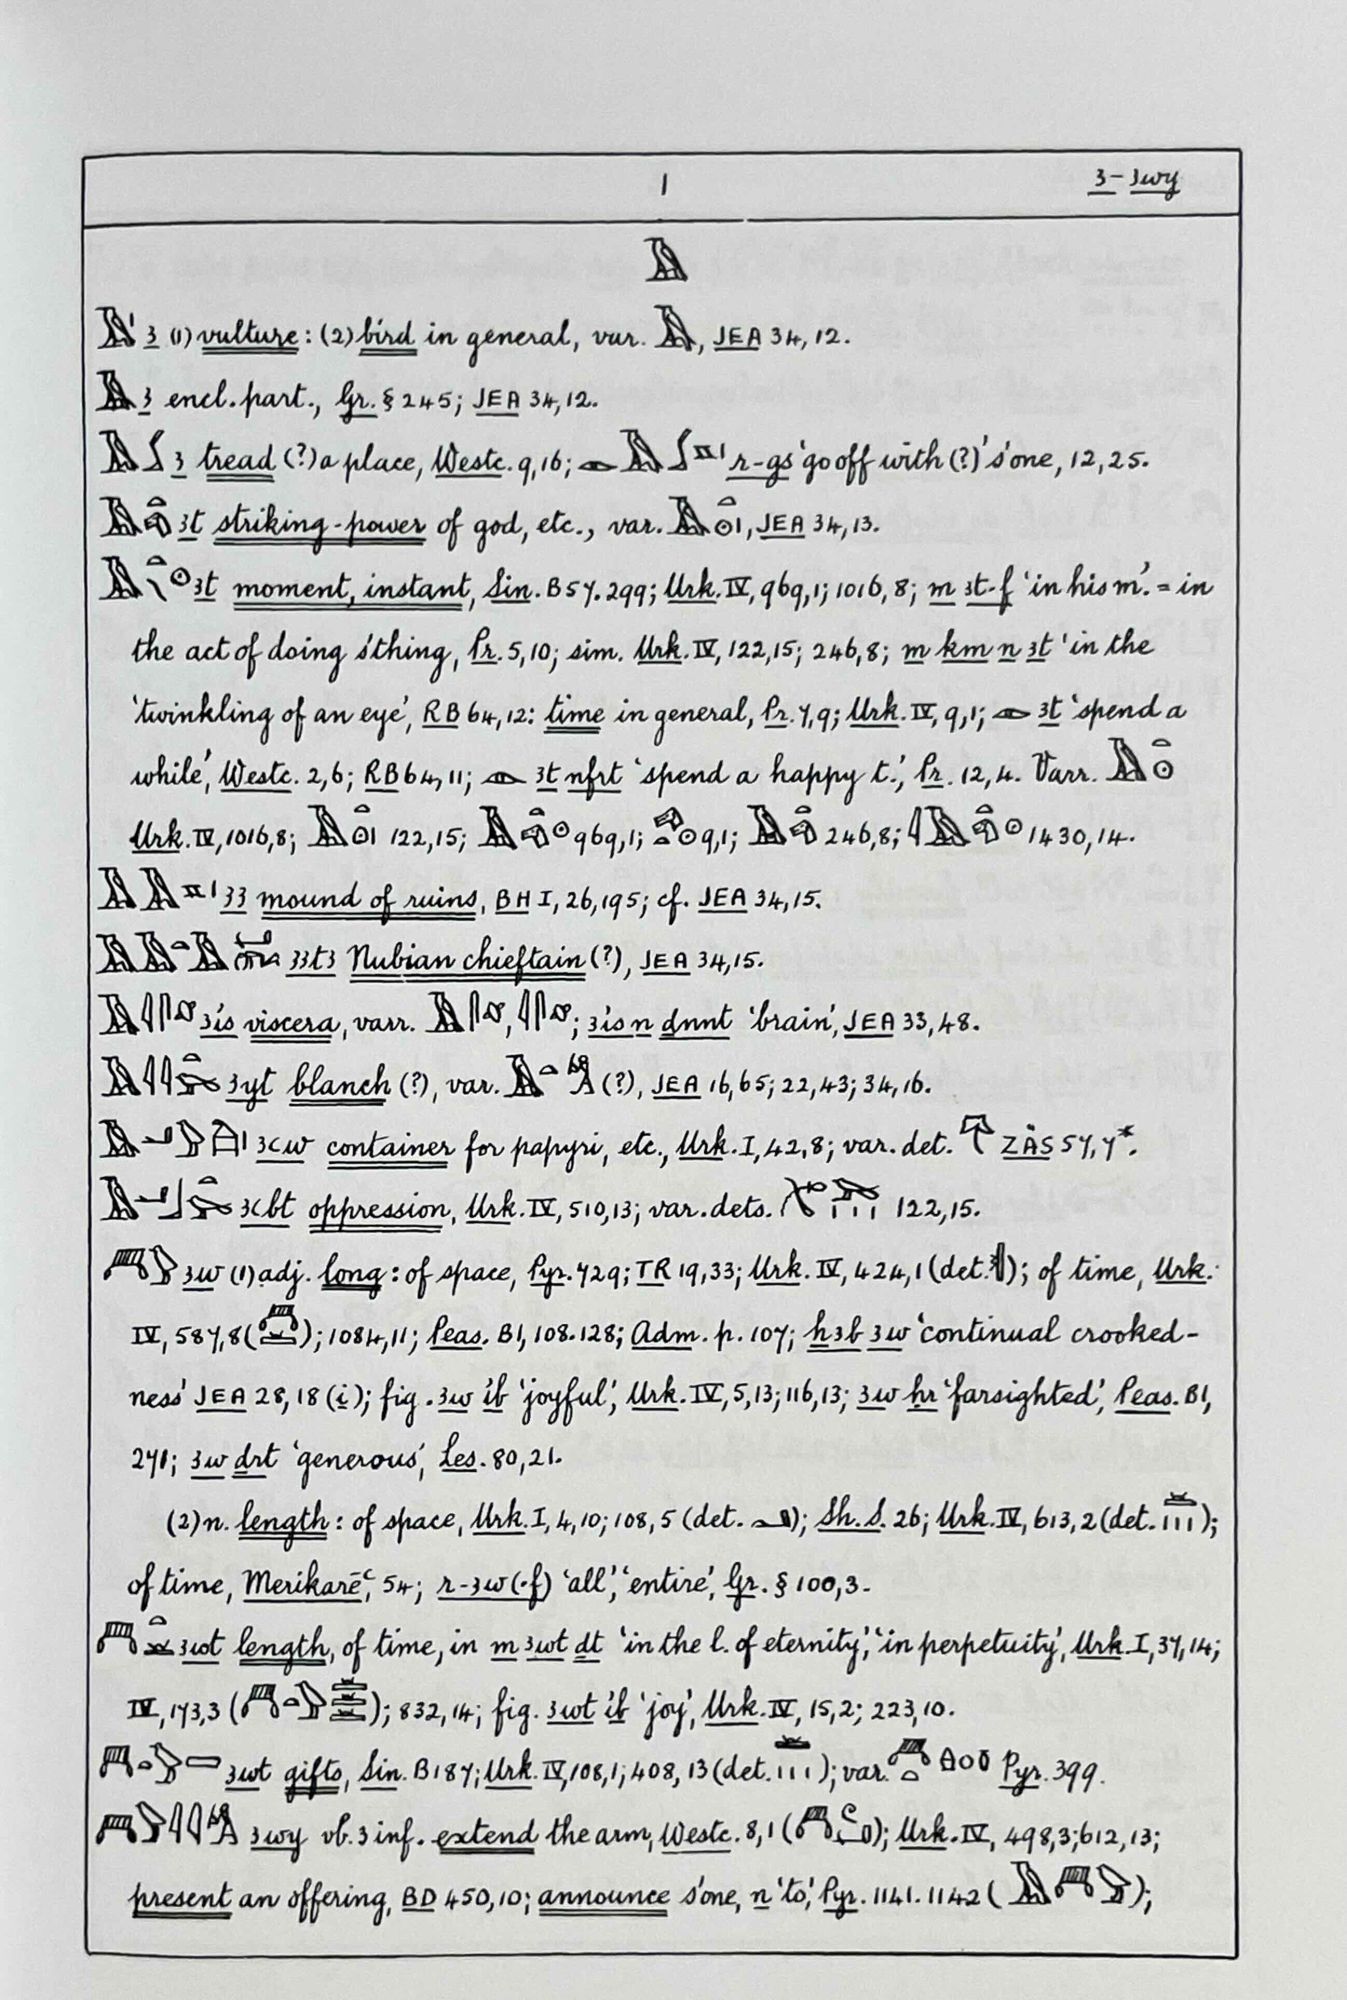 1 ꜣ-ꜣwy
𓄿
𓄿𓏤 ꜣ (1) vulture: (2) bird in general, var. 𓄿, JEA 34,12.
𓄿 ꜣ encl. part., Gr. § 245; JEA 34,12.
𓄿𓂾 ꜣ tread (?) a place, Westc. 9,16; 𓁹𓄿𓂾 r-gs 'go off with (?)' s'one, 12,25.
𓄿𓏏𓄃 ꜣt striking-power of god, etc., var. 𓄿𓏏𓇳𓏤, JEA 34,13.
𓄿𓏏𓇳 ꜣt moment, instant, Sin. B57.299; Urk. IV, 969,1; 1016,8; m ꜣt·f 'in his m.' = in
the act of doing s'thing, Pr. 5,10; sim. Urk. IV, 122,15; 246,8; m km n ꜣt 'in the
'twinkling of an eye', RB 64,12: time in general, Pr. 7,9; Urk. IV, 9,1; 𓁹 ꜣt 'spend a
while', Westc. 2,6; RB 64,11; 𓁹 ꜣt nfrt 'spend a happy t.', Pr. 12,4. Varr. 𓄿𓏏𓇳
Urk. IV, 1016,8; 𓄿𓏏𓇳𓏤 122,15; 𓄿𓏏𓄃𓇳 969,1; 𓄃𓏏𓇳 9,1; 𓄿𓏏𓄃 246,8; 𓇋𓄿𓏏𓄃𓇳 1430,14.
𓄿𓄿𓊖𓏤 ꜣꜣ mound of ruins, BH I, 26,195; cf. JEA 34,15.
𓄿𓄿𓏏𓄿 ꜣꜣtꜣ Nubian chieftain (?), JEA 34,15.
𓄿𓇋𓋴𓄹 ꜣis viscera, varr. 𓄿𓋴𓄹, 𓇋𓋴𓄹; ꜣis n ḏnnt 'brain', JEA 33,48.
𓄿𓇋𓇋𓏏𓅪 ꜣyt blanch (?), var. 𓄿𓏏 (?), JEA 16,65; 22,43; 34,16.
𓄿𓂝𓅱𓏤 ꜣꜥw container for papyri, etc., Urk. I, 42,8; var. det. ZÄS 57,7*.
𓄿𓂝𓃀𓏏𓅪 ꜣꜥbt oppression, Urk. IV, 510,13; var. dets. 𓅪𓏥 122,15.
𓄫𓅱 ꜣw (1) adj. long: of space, Pyr. 729; TR 19,33; Urk. IV, 424,1 (det. ); of time, Urk.
IV, 587,8 (𓄫𓏛); 1084,11; Peas. B1, 108.128; Adm. p. 107; ẖꜣb ꜣw 'continual crooked-
ness' JEA 28,18 (i); fig. ꜣw ib 'joyful', Urk. IV, 5,13; 116,13; ꜣw ḥr 'farsighted', Peas. B1,
271; ꜣw ḏrt 'generous', Les. 80,21.
(2) n. length: of space, Urk. I, 4,10; 108,5 (det. 𓂝); Sh. S. 26; Urk. IV, 613,2 (det. 𓏛𓏥);
of time, Merikarēꜥ, 54; r-ꜣw(·f) 'all', 'entire', Gr. § 100,3.
𓄫𓏏𓏛 ꜣwt length, of time, in m ꜣwt ḏt 'in the l. of eternity', 'in perpetuity', Urk. I, 37,14;
IV, 173,3 (𓄫𓏏𓅱𓏛𓏛𓏛); 832,14; fig. ꜣwt ib 'joy', Urk. IV, 15,2; 223,10.
𓄫𓏏𓅱 ꜣwt gifts, Sin. B187; Urk. IV, 108,1; 408,13 (det. 𓏛𓏥); var. 𓄫𓏏 Pyr. 399.
𓄫𓅱𓇋𓇋 ꜣwy vb. 3 inf. extend the arm, Westc. 8,1 (𓄫𓏲); Urk. IV, 498,3; 612,13;
present an offering, BD 450,10; announce s'one, n 'to', Pyr. 1141.1142 (𓄿𓄫𓅱);